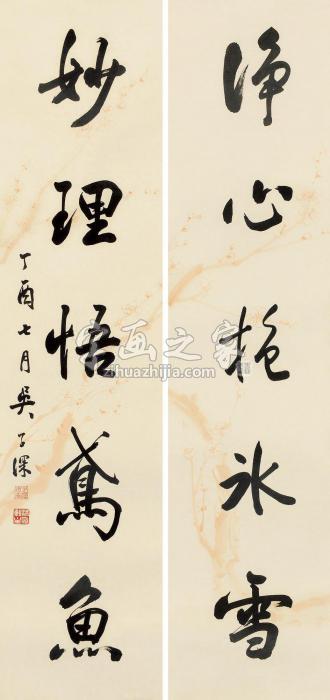 净心抱冰雪
妙理悟鸢鱼
丁酉七月吴子深
书画之家
zihuazhijia.com